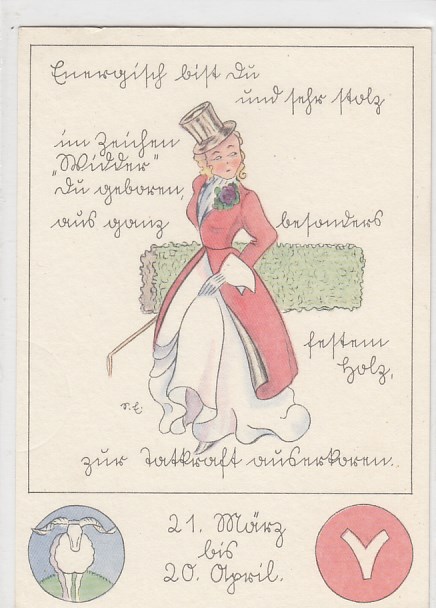 Energisch bist Du
und sehr stolz
im Zeichen
"Widder"
Du geboren,
aus ganz besonders
festem
Holz,
zur Tatkraft auserkoren..
21. März
bis
20. April.